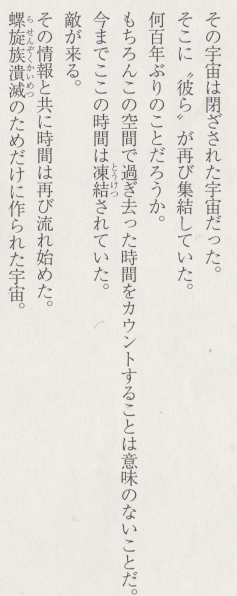 その宇宙は閉ざされた宇宙だった。
そこに〝彼ら〟が再び集結していた。
何百年ぶりのことだろうか。
もちろんこの空間で過ぎ去った時間をカウントすることは意味のないことだ。
今までここの時間は凍結されていた。
敵が来る。
その情報と共に時間は再び流れ始めた。
螺旋族潰滅のためだけに作られた宇宙。